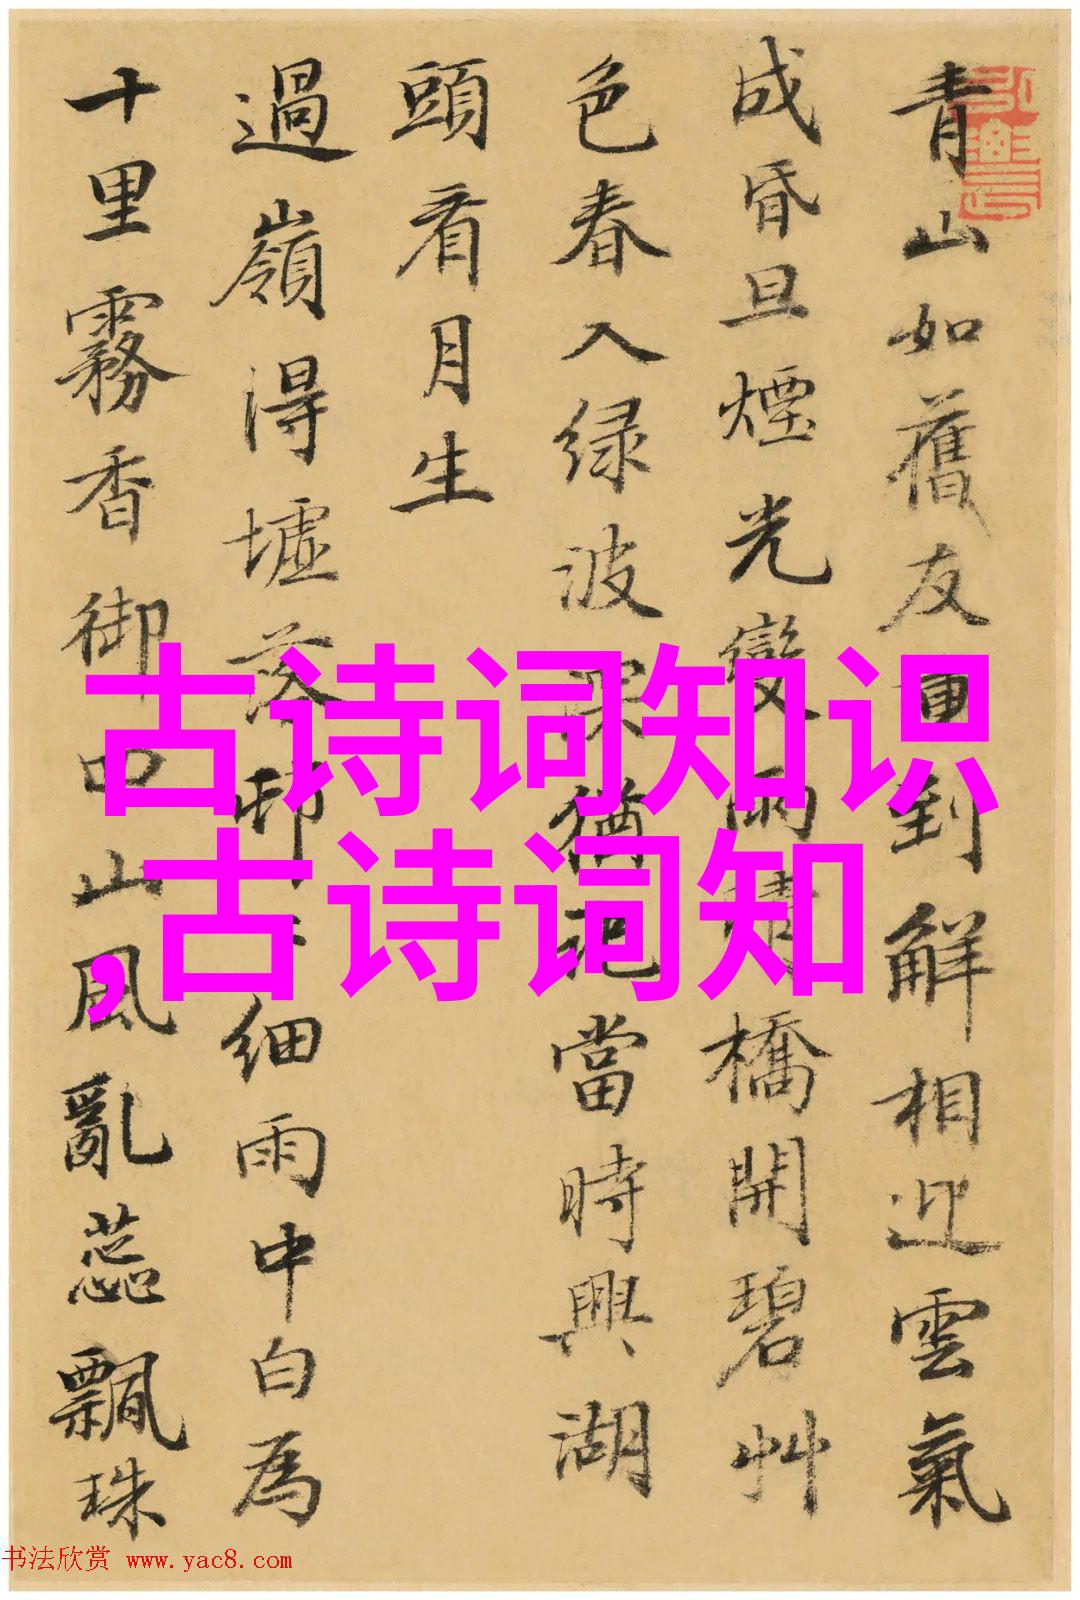 青山如舊友重到解相迎雲氣
成昏旦煙光變雨晴橋開碧艸
色春入绿波深猶記當時興湖
頭看月生
過嶺得墟落邨細雨中白為
十里霧香御口山風亂蕊飄珠
古诗词知识
,古诗词知
书法欣赏 www.yac8.com